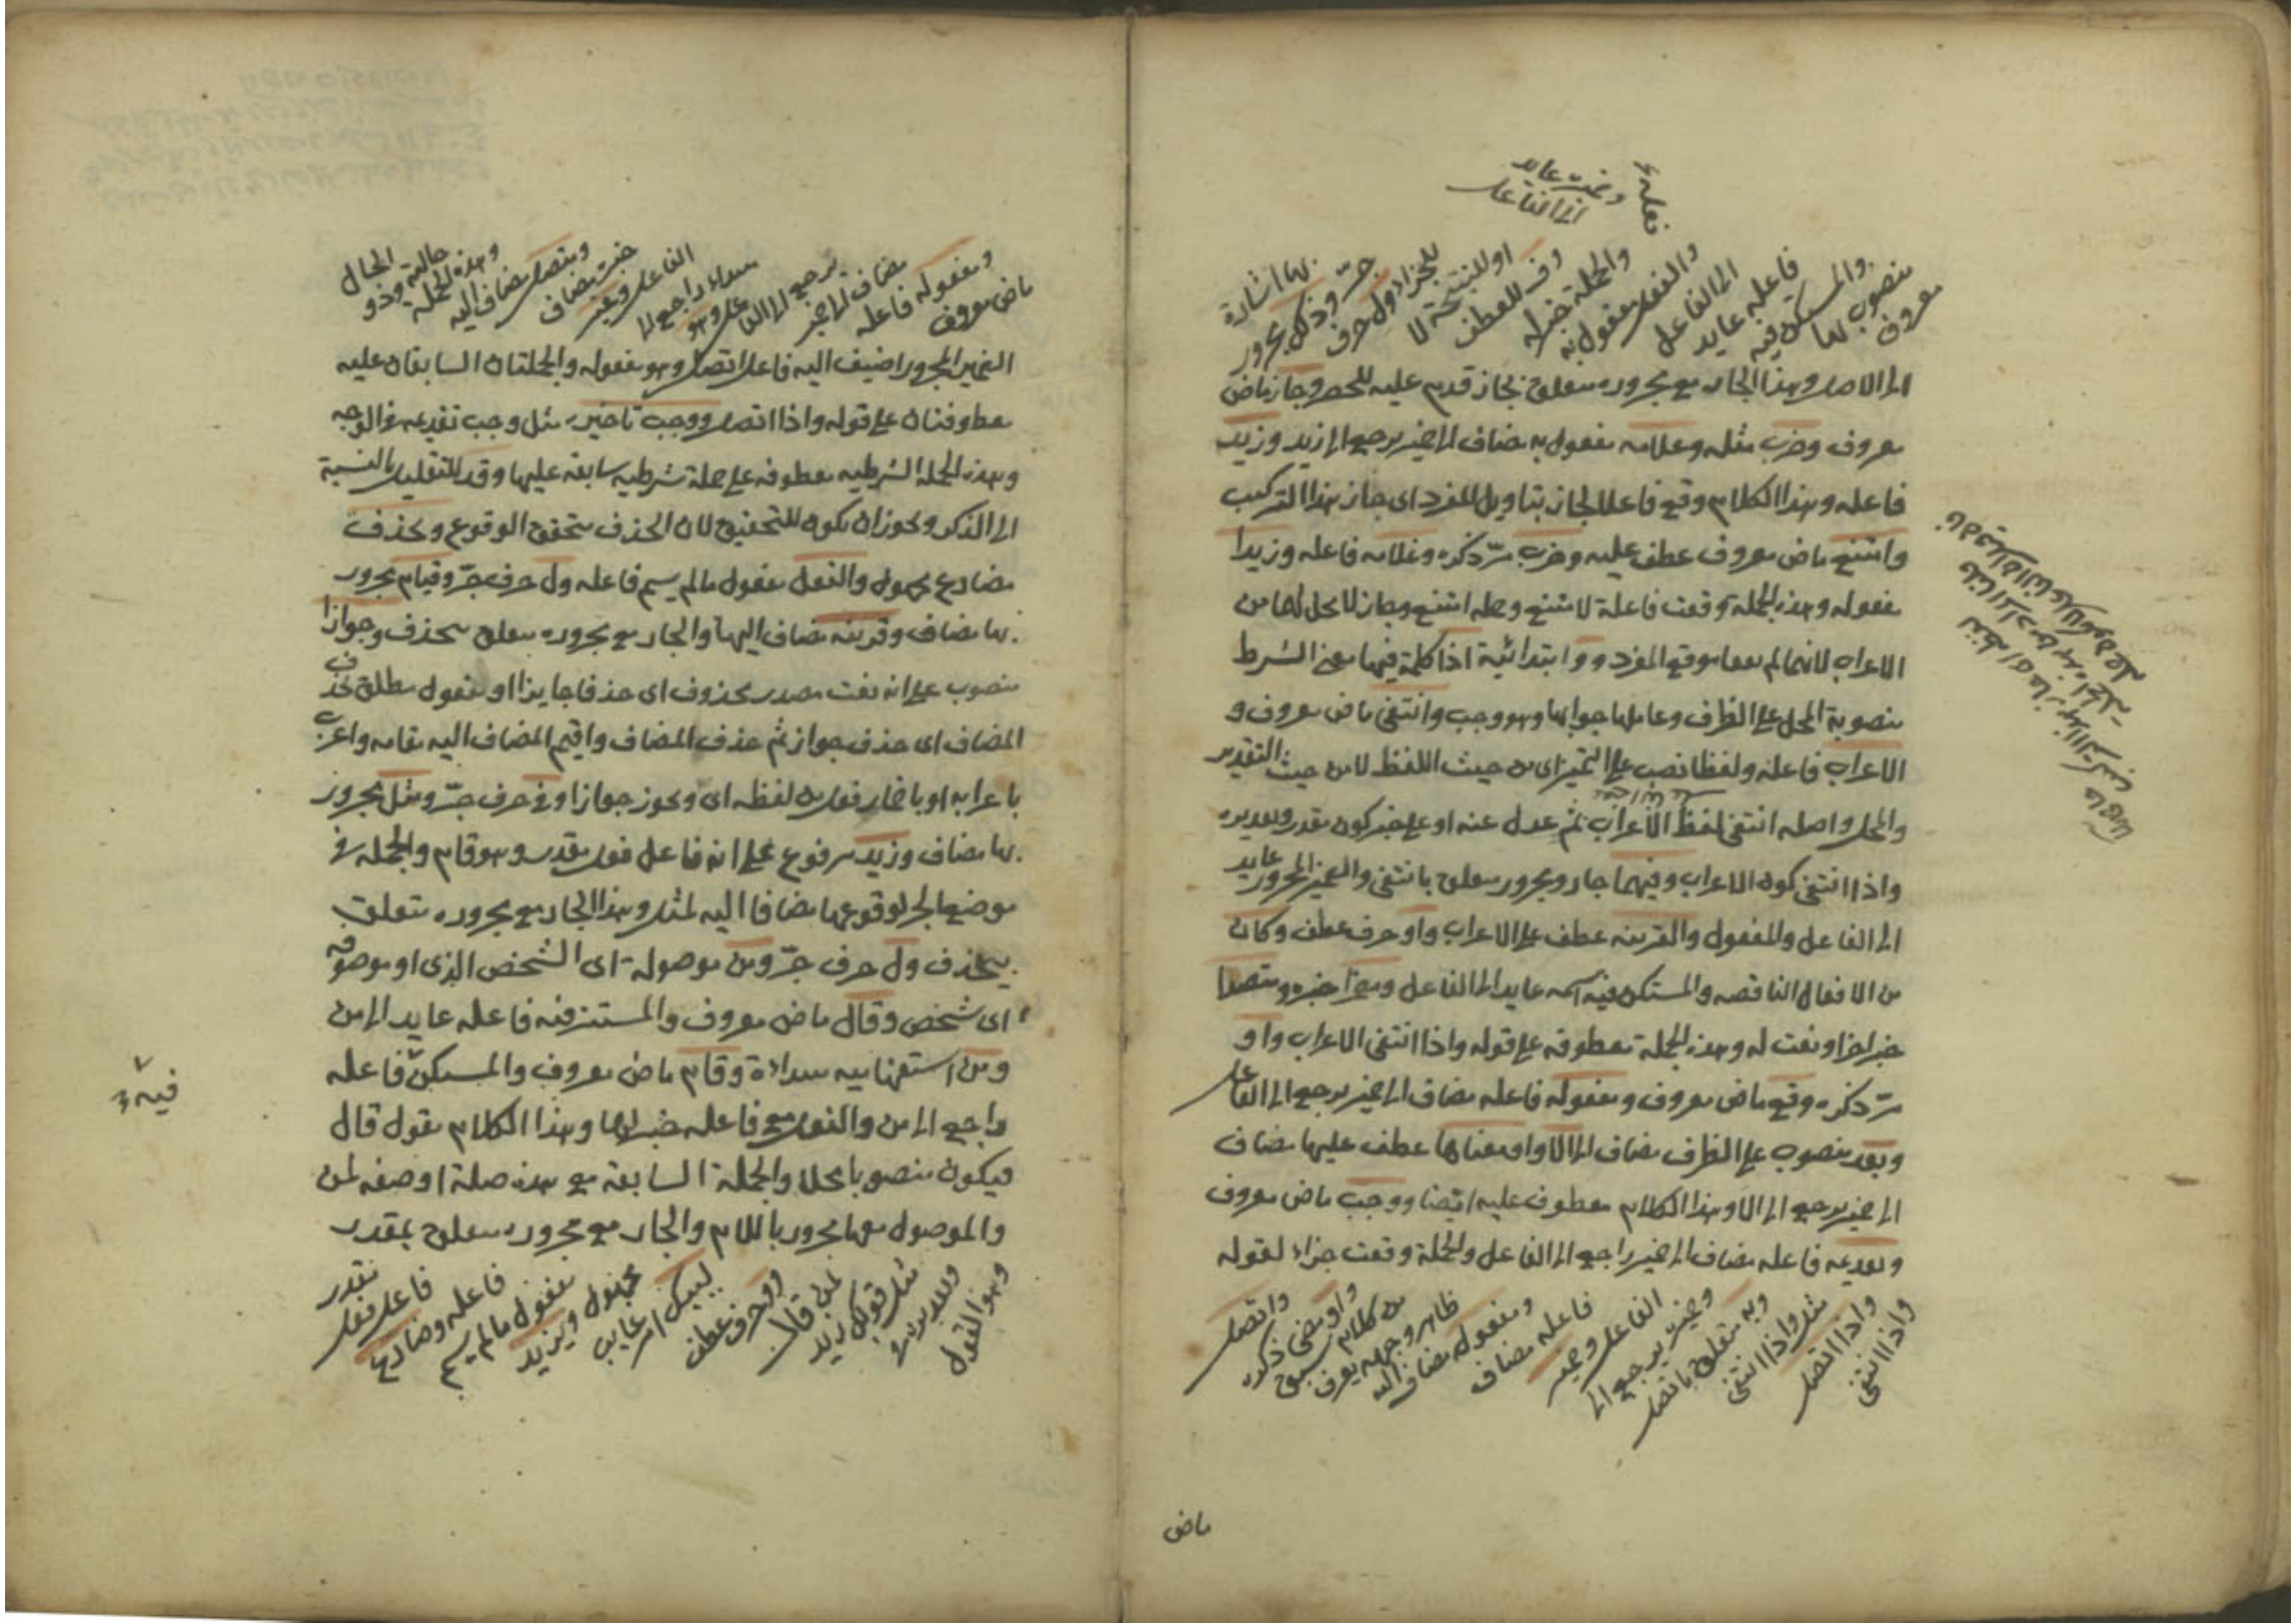 وخبره عايد
الى الفاعل
فعله
معروف
منصوب لها
والمستكن فيه
فاعله عايد
الى الفاعل
والفعل مفعول به
والجملة خبر له
وف للعطف
او للنتيجة لا
للجزاء ول حرف
جر وذلك مجرور
بها اشارة
الى الاصل وهذا الجار مع مجروره متعلق بجاز قدم عليه للحصر وجاز ماض
معروف وضرب مثله وغلامه مفعول به مضاف الى ضمير يرجع الى زيد وزيد
فاعله وهذا الكلام وقع فاعلا لجاز بتاويل المفرد اى جاز هذا التركيب
وامتنع ماض معروف عطف عليه وضرب مر ذكره وغلامه فاعله وزيدا
مفعوله وهذه الجملة وقعت فاعلة لامتنع وجملة امتنع وجاز لا محل لها من
الاعراب لانهما لم يقعا موقع المفرد و و ابتدائية اذا كلمة فيها معنى الشرط
منصوبة المحل على الظرف وعاملها جوابها وهو وجب وانتفى ماض معروف و
الاعراب فاعله ولفظا نصب على التميز اى من حيث اللفظ لا من حيث التقدير
والمحل واصله انتفى لفظ الاعراب ثم عدل عنه او على خبر كون مقدر وتقديره
واذا انتفى كون الاعراب وفيهما جار ومجرور متعلق بانتفى والضمير المجرور عايد
الى الفاعل والمفعول والقرينه عطف على الاعراب واو حرف عطف وكان
من الافعال الناقصه والمستكن فيه اسمه عايد الى الفاعل ومضمرا خبره ومتصلا
خبر اخر او نعت له وهذه الجملة معطوفه على قوله واذا انتفى الاعراب واو
مر ذكره وقع ماض معروف ومفعوله فاعله مضاف الى ضمير يرجع الى الفاعل
وبعد منصوب على الظرف مضاف الى الا واو معناها عطف عليها مضاف
الى ضمير يرجع الى الا وهذا الكلام معطوف عليه ايضا ووجب ماض معروف
وتقديمه فاعله مضاف الى ضمير راجع الى الفاعل والجملة وقعت جزاء لقوله
واذا انتفى
واذا اتصل
مثل واذا انتفى
وبه متعلق باتصل
وضمير يرجع الى
الفاعل وضمير
فاعله مضاف
ومفعوله مضاف اليه
ظاهر وجهه يعرف
من كلام سبق
واو مضى ذكره
واتصل
ماض
ماض معروف
ومفعوله فاعله
مضاف الى ضمير
يرجع الى الفا
عل وهو
مبتداء راجع الى
الفاعل وغير
خبره مضاف
ومتصل مضاف اليه
وهذه الجملة
حالية وذو
الحال
الضمير المجرور اضيف اليه فاعل اتصل وهو مفعوله والجملتان السابقان عليه
معطوفتان على قوله واذا اتصل ووجب تاخيره مثل وجب تقديمه فى الوجه
وهذه الجملة الشرطيه معطوفه على جملة شرطيه سابقة عليها وقد للتقليل بالنسبة
الى الذكر ويجوز ان يكون للتحقيق لان الحذف متحقق الوقوع ويحذف
مضارع مجهول والفعل مفعول مالم يسم فاعله ول حرف جر وقيام مجرور
بها مضاف وقرينه مضاف اليها والجار مع مجروره متعلق بيحذف وجوازا
منصوب على انه نعت مصدر محذوف اى حذفا جايزا او مفعول مطلق بحذف
المضاف اى حذف جواز ثم حذف المضاف واقيم المضاف اليه مقامه واعرب
باعرابه او باضمار فعل من لفظه اى ويجوز جوازا وفى حرف جر ومثل مجرور
بها مضاف وزيد مرفوع على انه فاعل فعل مقدر وهو قام والجملة فى
موضع الجر لوقوعها مضافا اليه لمثل وهذا الجار مع مجروره متعلق
بيحذف ول حرف جر ومن موصولة اى الشخص الذى او موصوفه
اى شخص وقال ماض معروف والمستتر فيه فاعله عايد الى من
ومن استفهاميه مبتداءة وقام ماض معروف والمستكن فاعله
فيه
راجع الى من والفعل مع فاعله خبر لها وهذا الكلام مقول قال
فيكون منصوبا محلا والجملة السابقة مع هذه صلة او صفه لمن
والموصول معها مجرور باللام والجار مع مجروره متعلق بمقدر
وهو القول
مثل قولك زيد
لمن قال
و وحرف عطف
ليبك امر غايب
مجهول ويزيد
مفعول مالم يسم
فاعله وضارع
فاعل فعل
مقدر